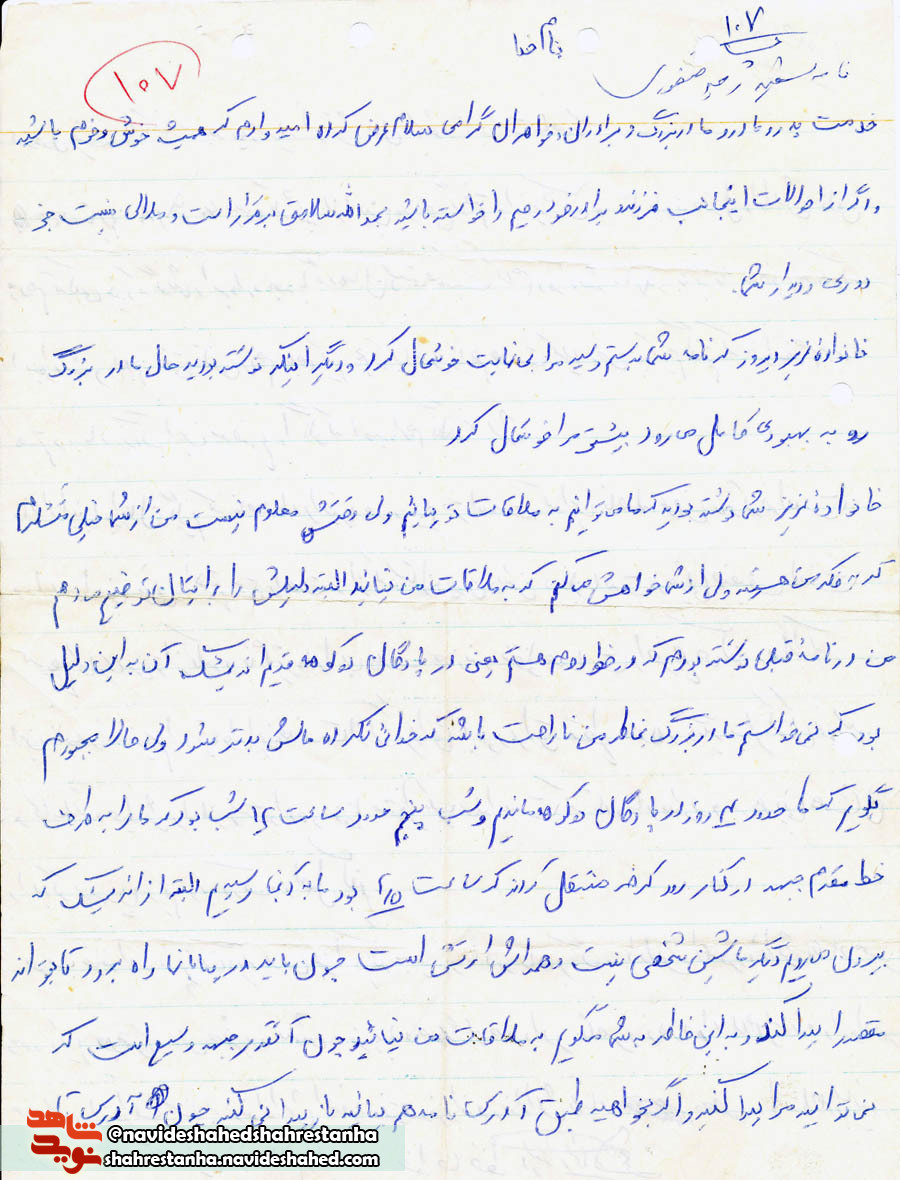 ۱۰۷
بنام خدا
نامه شهید رحیم صفوری
۱۰۷
خدمت پدر و مادر و مادربزرگ و برادران و خواهران گرامی سلام عرض کرده امیدوارم که همیشه خوش و خرم باشید
و اگر از احوالات اینجانب فرزند و برادر خود رحیم را خواسته باشید بحمدالله سلامتی برقرار است و ملالی نیست جز
دوری و دیدار شما.
خانواده عزیز دیروز که نامه شما بدستم رسید مرا بی نهایت خوشحال کرد و دیگر اینکه نوشته بودید حال مادر بزرگ
رو به بهبودی کامل می رود بیشتر مرا خوشحال کرد
خانواده عزیز شما نوشته بودید که ما می توانیم به ملاقات تو بیائیم ولی وقتش معلوم نیست من از شما خیلی متشکرم
که به فکر من هستید ولی از شما خواهش می کنم که به ملاقات من نیائید البته دلیلش را برایتان توضیح می دهم
من در نامه قبلی نوشته بودم که در خط دوم هستم یعنی در پادگان دوکوهه قدیم اندیمشک آن به این دلیل
بود که نمی خواستم مادر بزرگ بخاطر من ناراحت باشد که خدائی نکرده حالش بدتر شود ولی حالا مجبورم
بگویم که ما حدود ۴ روز در پادگان دوکوهه ماندیم و شب پنجم حدود ساعت ۱۲ شب بود که ما را به طرف
خط مقدم جبهه در کنار رود کرخه منتقل کردند که ساعت بود ما به آنجا رسیدیم البته از اندیمشک که
بیرون می رویم دیگر ماشین شخصی نیست و همه اش ارتش است چون باید در بیابانها راه برود تا بتواند
مقصد را پیدا کند و به این خاطر به شما میگویم به ملاقات من نیائید چون آنقدر جبهه وسیع است که
نمی توانید مرا پیدا کنید و اگر بخواهید طبق آدرس نامه هم بیائید باز پیدا نمی کنید چون آدرس
شاهد
نوید
@navideshahedshahrestanha
shahrestanha.navideshahed.com